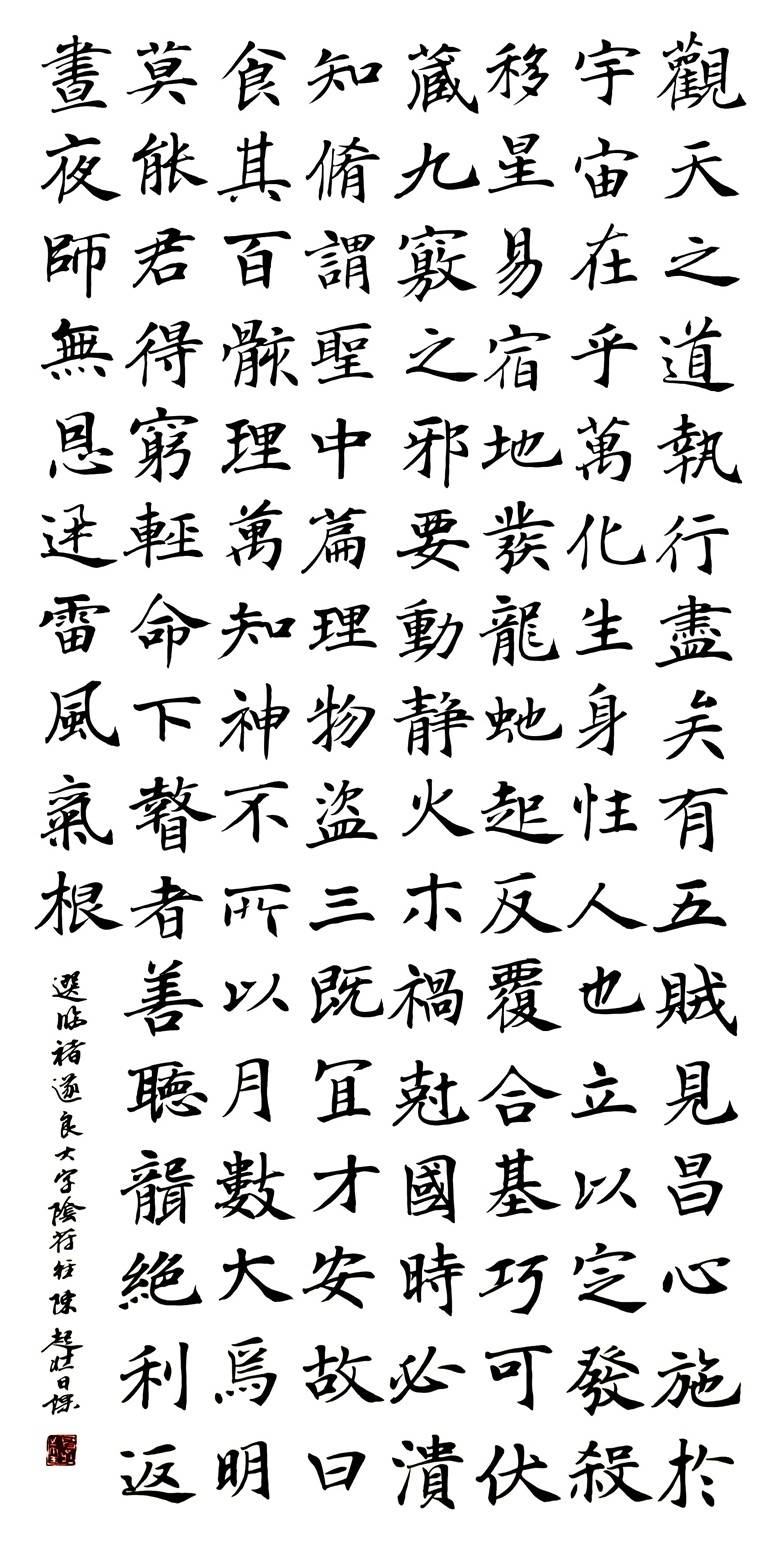 觀天之道執行盡矣有五賊見昌心施於
宇宙在乎萬化生身性人也立以定發殺
移星易宿地發龍虵起反覆合基巧可伏
藏九竅之邪要動静火木禍尅國時必潰
知脩謂聖中篇理物盜三既冝才安故曰
食其百骸理萬知神不所以月數大焉明
莫能君得窮輕命下瞽者善聽聾絕利返
晝夜師無恩迅雷風氣根
選臨褚遂良大字陰符經陳起壯日課